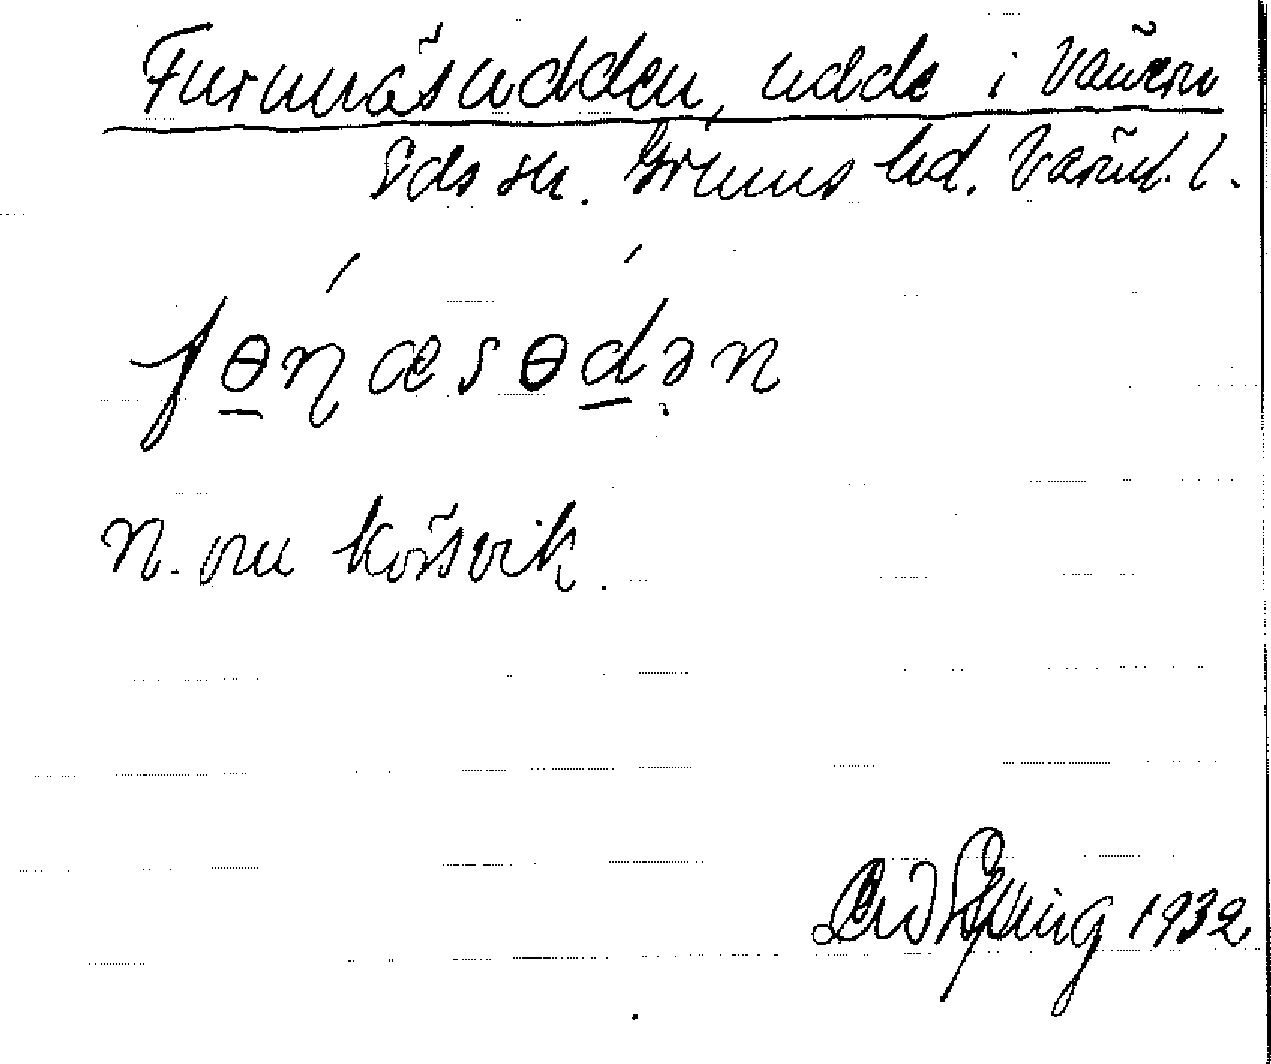 Furunäsudden, udde i Vänern
Eds sn. Grums hd. Värml. l.
fɵn̡æsɵdən
n. om Korsvik.
1932